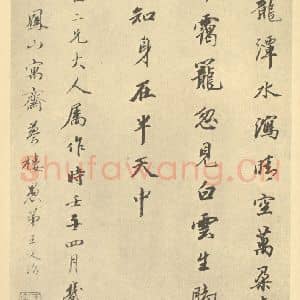 龍潭水瀉晴空萬朵
靄籠忽見白雲生腳
知身在半天中
二兄大人属作時壬午四月
鳳山寓齋蔡樓愚弟王文治
Shufawang.CN